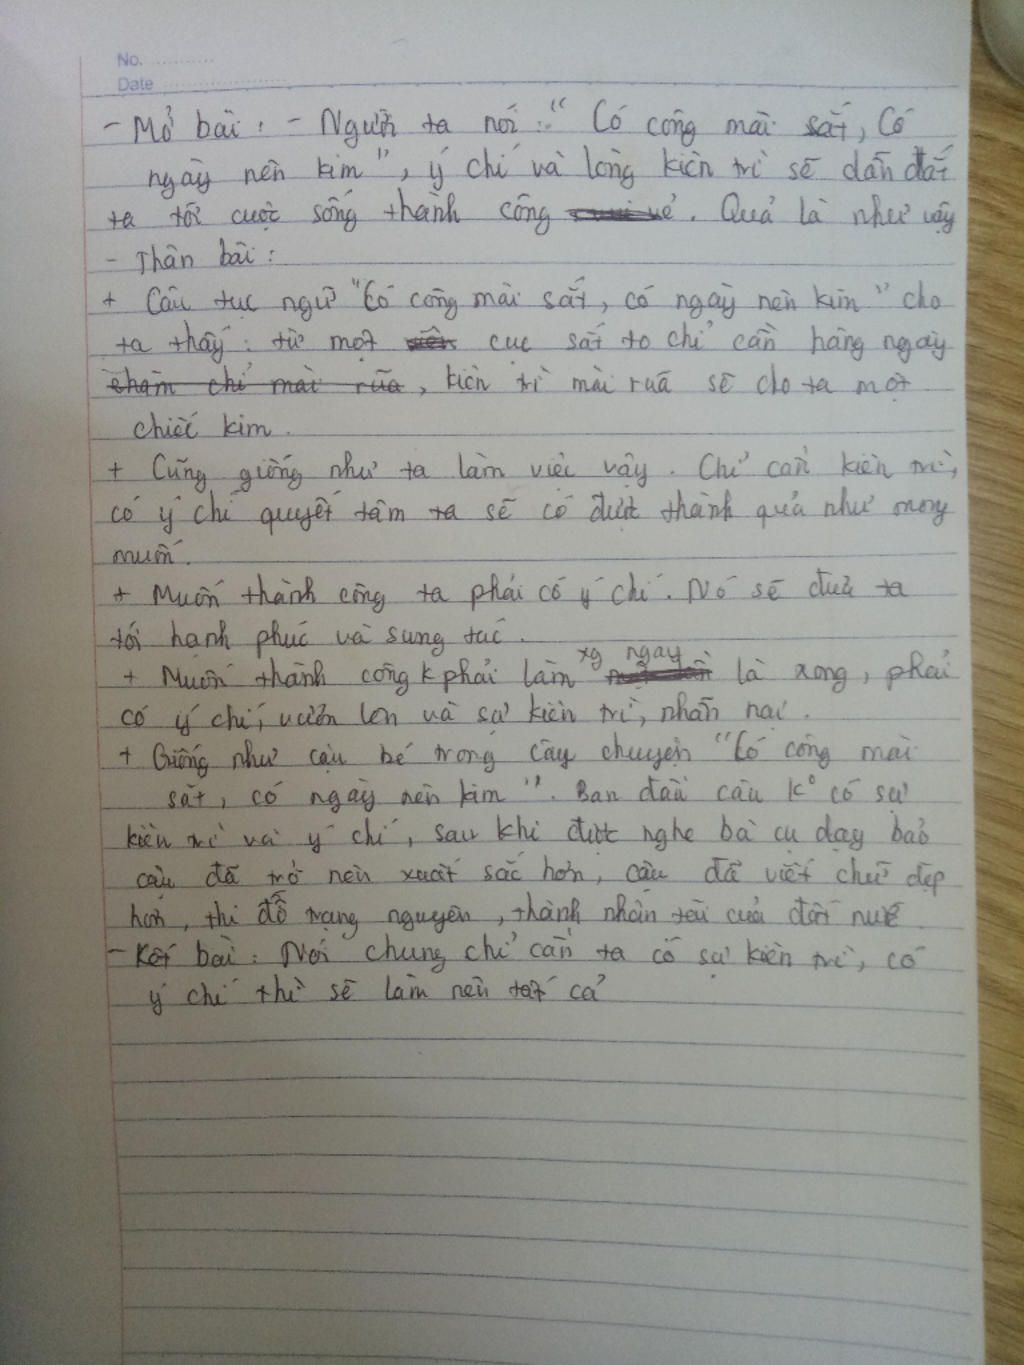 No. ............
Date .........................
- Mở bài : - Người ta nói : " Có công mài sắt, Có
ngày nên kim ", ý chí và lòng kiên trì sẽ dẫn dắt
ta tới cuộc sống thành công. Quả là như vậy
- Thân bài :
+ Câu tục ngữ "Có công mài sắt, có ngày nên kim" cho
ta thấy : từ một cục sắt to chỉ cần hàng ngày
, kiên trì mài rũa sẽ cho ta một
chiếc kim.
+ Cũng giống như ta làm việc vậy. Chỉ cần kiên trì,
có ý chí quyết tâm ta sẽ có được thành quả như mong
muốn.
+ Muốn thành công ta phải có ý chí. Nó sẽ đưa ta
tới hạnh phúc và sung túc.
xg ngay
+ Muốn thành công k phải làm là xong, phải
có ý chí, vươn lên và sự kiên trì, nhẫn nại.
+ Giống như cậu bé trong câu chuyện "Có công mài
sắt, có ngày nên kim". Ban đầu cậu k° có sự
kiên trì và ý chí, sau khi được nghe bà cụ dạy bảo
cậu đã trở nên xuất sắc hơn, cậu đã viết chữ đẹp
hơn, thi đỗ trạng nguyên, thành nhân tài của đất nước.
- Kết bài : Nói chung chỉ cần ta có sự kiên trì, có
ý chí thì sẽ làm nên tất cả